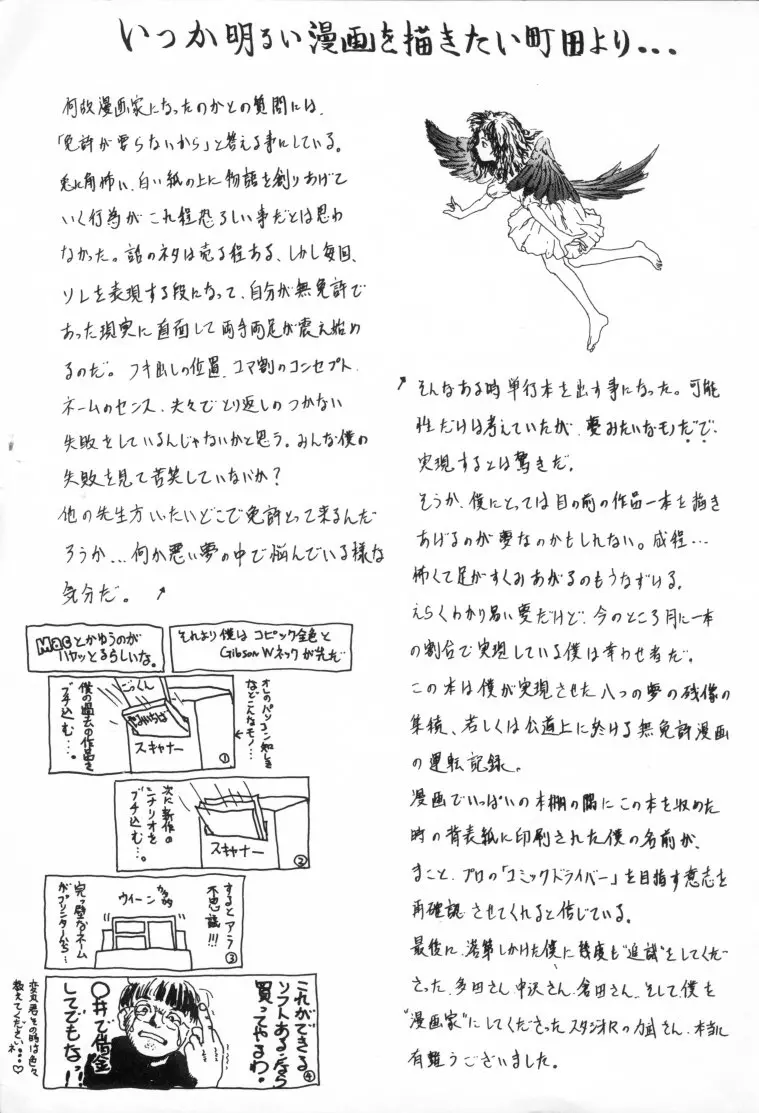 いつか明るい漫画を描きたい町田より...
何故漫画家になったのかとの質問には、
「免許が要らないから」と答える事にしている。
兎に角怖い、白い紙の上に物語を創りあげて
いく行為がこれ程恐ろしい事だとは思わ
なかった。話のネタは売る程ある、しかし毎回、
ソレを表現する段になって、自分が無免許で
あった現実に直面して両手両足が震え始め
るのだ。フキ出しの位置、コマ割のコンセプト、
ネームのセンス、大々でとり返しのつかない
失敗をしているんじゃないかと思う。みんな僕の
失敗を見て苦笑していないか?
他の先生方いったいどこで免許とって来るんだ
ろうか...何か悪い夢の中で悩んでいる様な
気分だ。↗
↗そんなある時単行本を出す事になった。可能
性だけは考えていたが、夢みたいなモノだで、
実現するとは驚きだ。
そうか、僕にとっては目の前の作品一本を描き
あげるのが夢なのかもしれない。成程...
怖くて足がすくみあがるのもうなずける。
えらくわかり易い夢だけど、今のところ月に一本
の割合で実現している僕は幸わせ者だ。
この本は僕が実現させた八つの夢の残像の
集積、若しくは公道上に於ける無免許漫画
の運転記録。
漫画でいっぱいの本棚の隅にこの本を収めた
時の背表紙に印刷された僕の名前が、
まこと、プロの「コミックドライバー」を目指す意志を
再確認させてくれると信じている。
最後に、落第しかけた僕に幾度も"追試"をしてくだ
さった、多田さん、中沢さん、倉田さん、そして僕を
"漫画家"にしてくださったスタジオRの力武さん、本当に
有難うございました。
Macとかゆうのが
ハヤッとるらしいな。
それより僕はコピック全色と
Gibson Wネックが先だ
僕の過去の作品を
ブチ込む...。
ごっくん
やみいちば
スキャナー
①
オレのパソコン知しき
などこんなモノ...
次に新作の
シナリオを
ブチ込む...。
スキャナー
②
するとアラ
不思議!!!
ウイーン
完っ璧なネーム
がプリンターから...
③
これができる
ソフトあるなら
買ってやるわ。
〇井で借金
してでもなっ!!
④
その時は色々
教えてくださいネ...♡